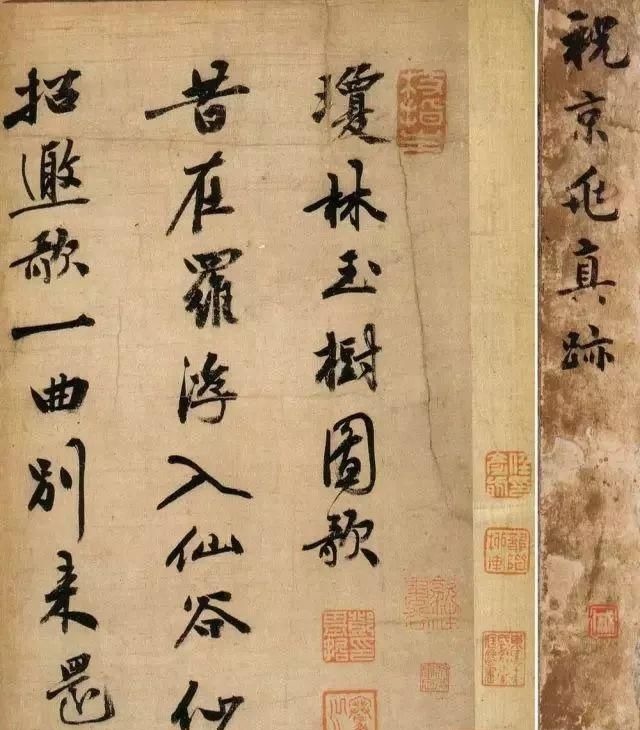 祝京兆真跡
枝指生
瓊林玉樹圖歌
昔在羅浮入仙谷仙
招邀歌一曲別来還